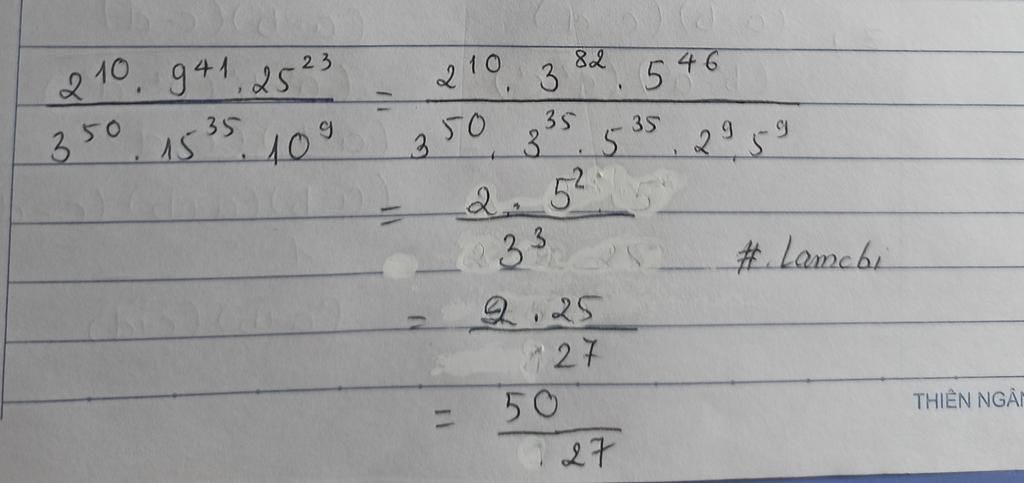 2^10 . 9^41 . 25^23 / 3^50 . 15^35 . 10^9 = 2^10 . 3^82 . 5^46 / 3^50 . 3^35 . 5^35 . 2^9 . 5^9
= 2 . 5^2 / 3^3
# .Lamchi
= 2 . 25 / 27
= 50 / 27
THIÊN NGÂN